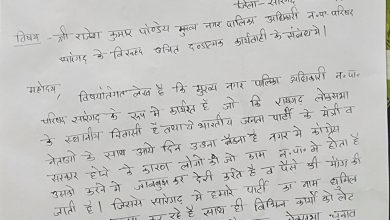 जिला - सारंगढ़
विषय :- श्री राजेश कुमार पाण्डेय मुख्य नगर पालिका अधिकारी न.पा. परिषद
सारंगढ़ के विरूद्ध उचित दण्डात्मक कार्यवाही के संबंध में।
महोदय,
विषयांतर्गत लेख है कि मुख्य नगर पालिका अधिकारी न.पा.
परिषद सारंगढ़ के रूप में कार्यरत है जो कि रायगढ़ लोकसभा
के स्थानीय निवासी हैं तथा ये भारतीय जनता पार्टी के मंत्री व
नेताओं के साथ आये दिन उठना बैठना है नगर में कांग्रेस
सरकार होने के कारण लोगों की जो काम न.पा. में होता है
उसको करने में जानबूझकर देरी करते है व पैसे की माँग की
जाती है। जिससे सारंगढ़ में हमारे पार्टी का नाम धूमिल
कर रहे हैं साथ ही विभिन्न कार्यो को लेट
चुनाव